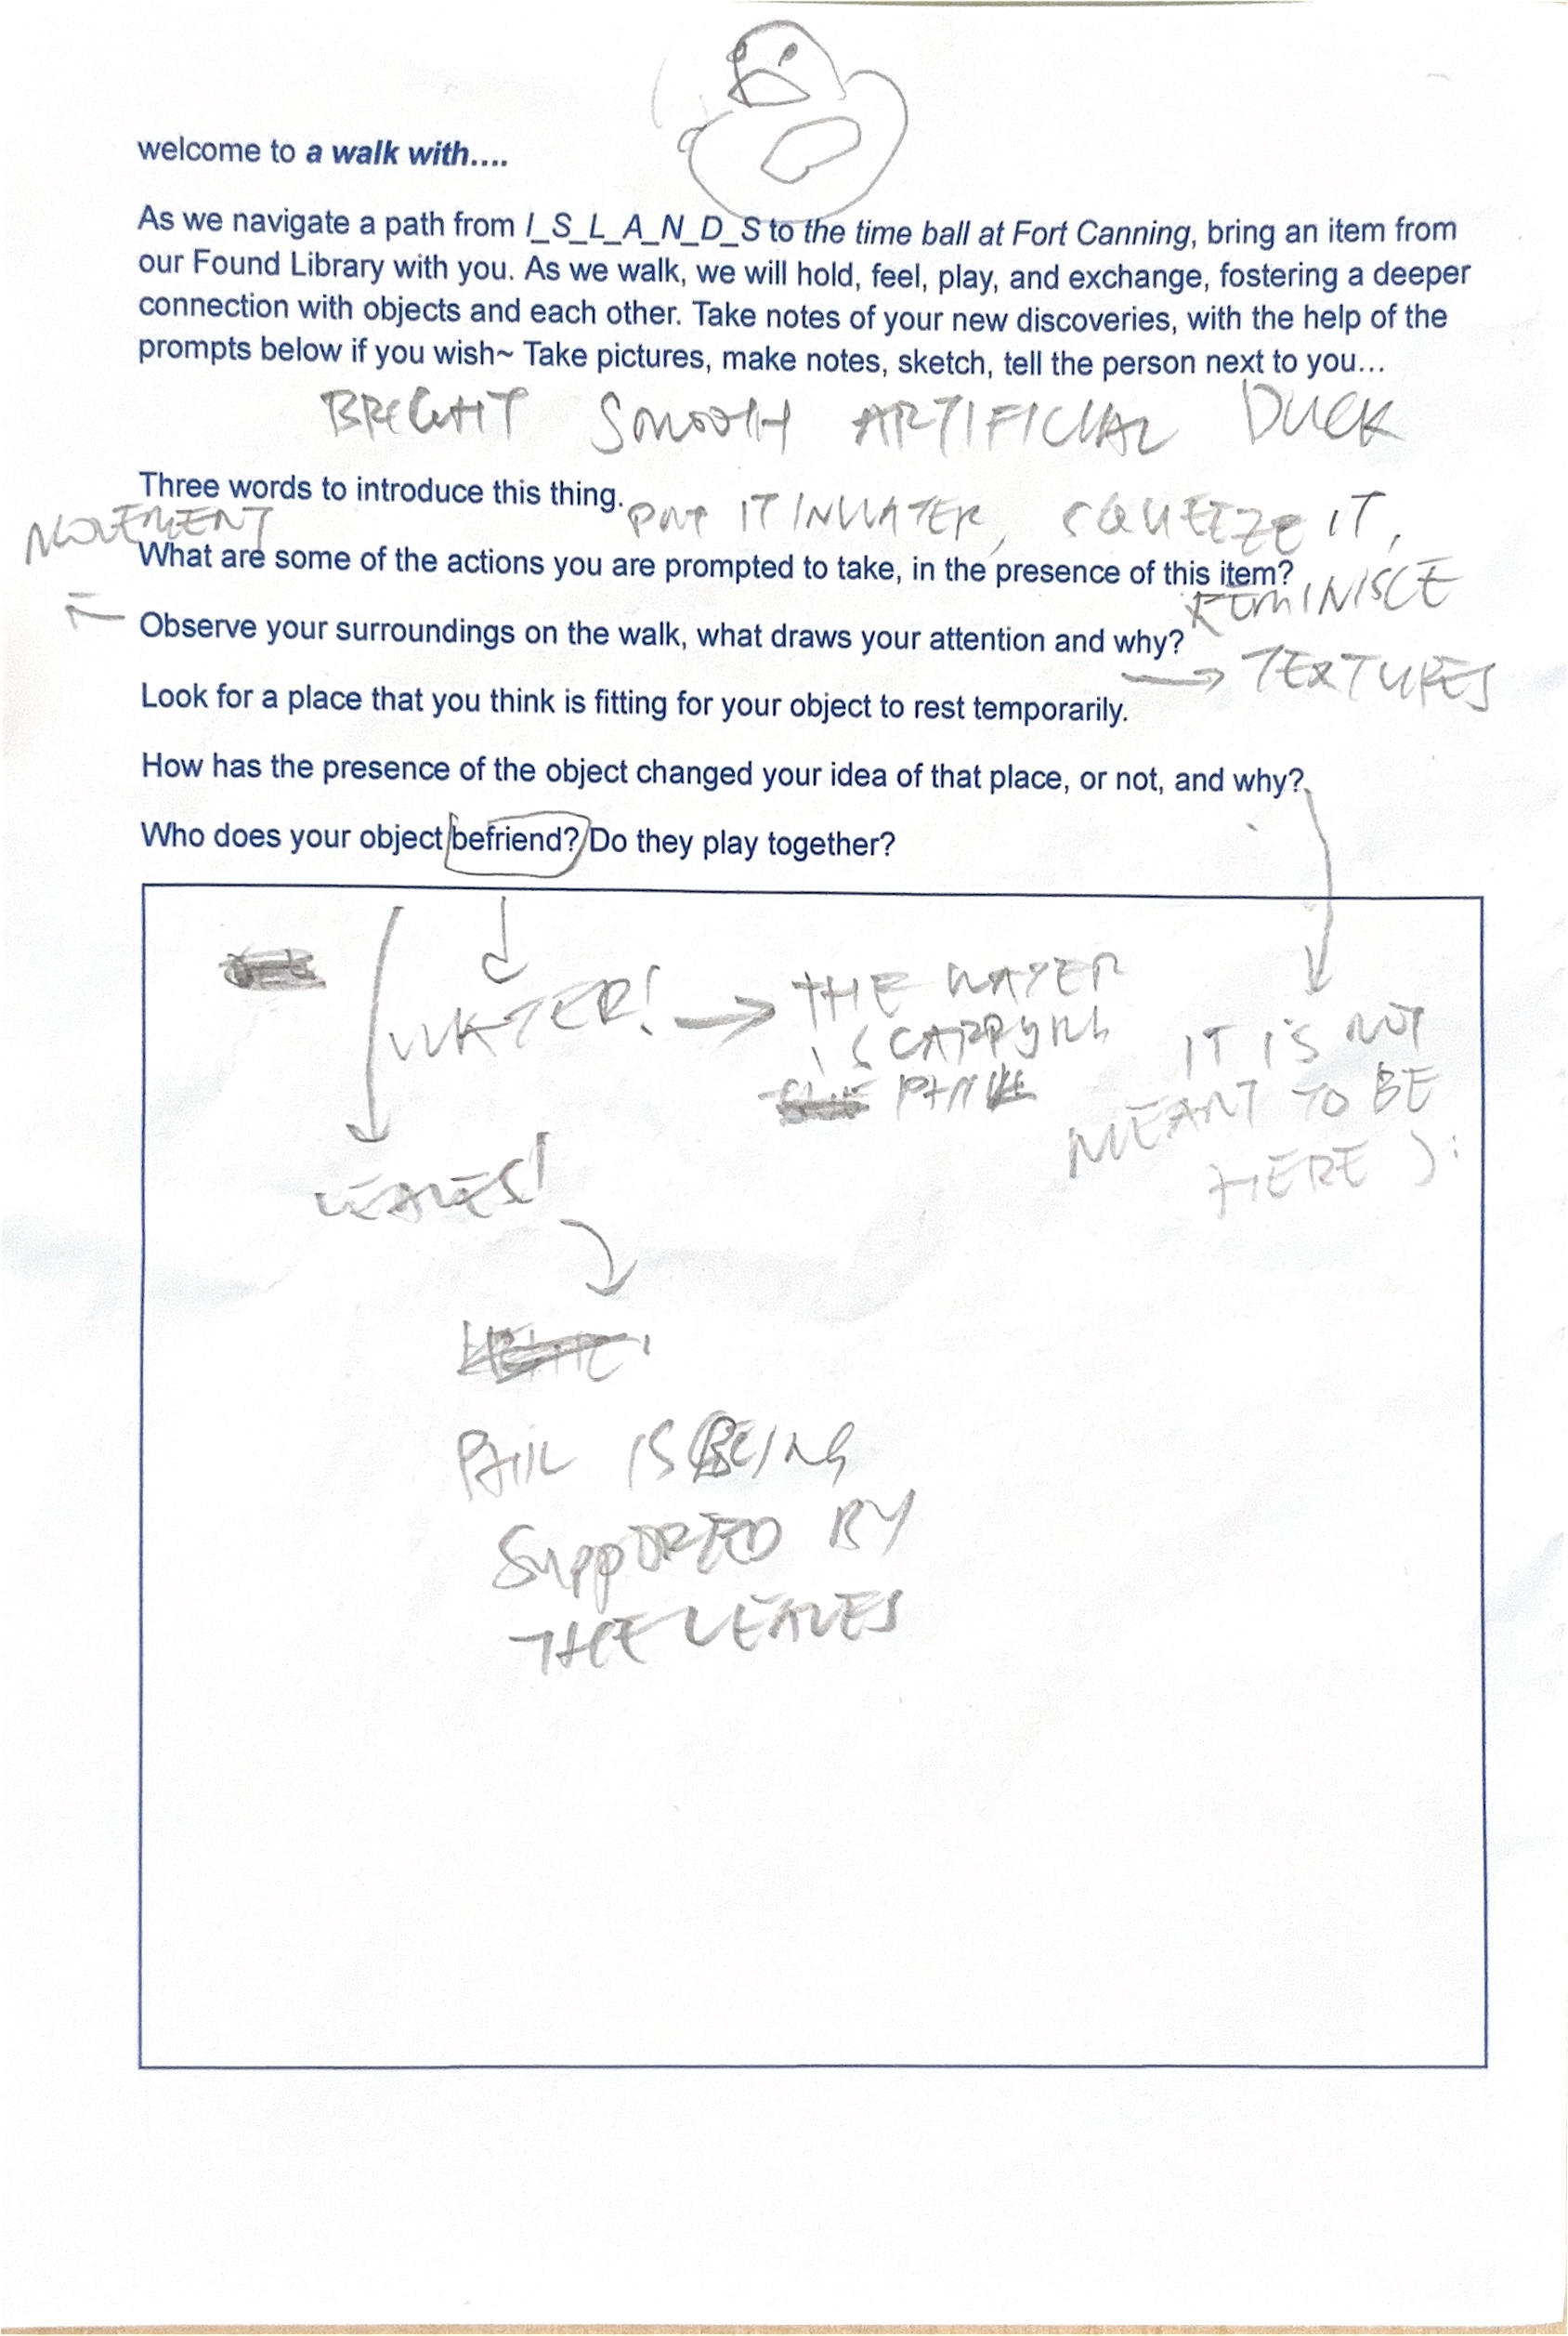 welcome to a walk with....
As we navigate a path from I_S_L_A_N_D_S to the time ball at Fort Canning, bring an item from
our Found Library with you. As we walk, we will hold, feel, play, and exchange, fostering a deeper
connection with objects and each other. Take notes of your new discoveries, with the help of the
prompts below if you wish~ Take pictures, make notes, sketch, tell the person next to you...
BRIGHT SMOOTH ARTIFICIAL DUCK
Three words to introduce this thing.
PUT IT IN WATER, SQUEEZE IT,
REMINISCE
MOVEMENT
What are some of the actions you are prompted to take, in the presence of this item?
Observe your surroundings on the walk, what draws your attention and why?
→ TEXTURES
Look for a place that you think is fitting for your object to rest temporarily.
How has the presence of the object changed your idea of that place, or not, and why?
Who does your object befriend? Do they play together?
WATER! → THE WATER
IS CARRYING
IT IS NOT
MEANT TO BE
HERE ):
LEAVES!
PHIL IS BEING
SUPPORTED BY
THE LEAVES